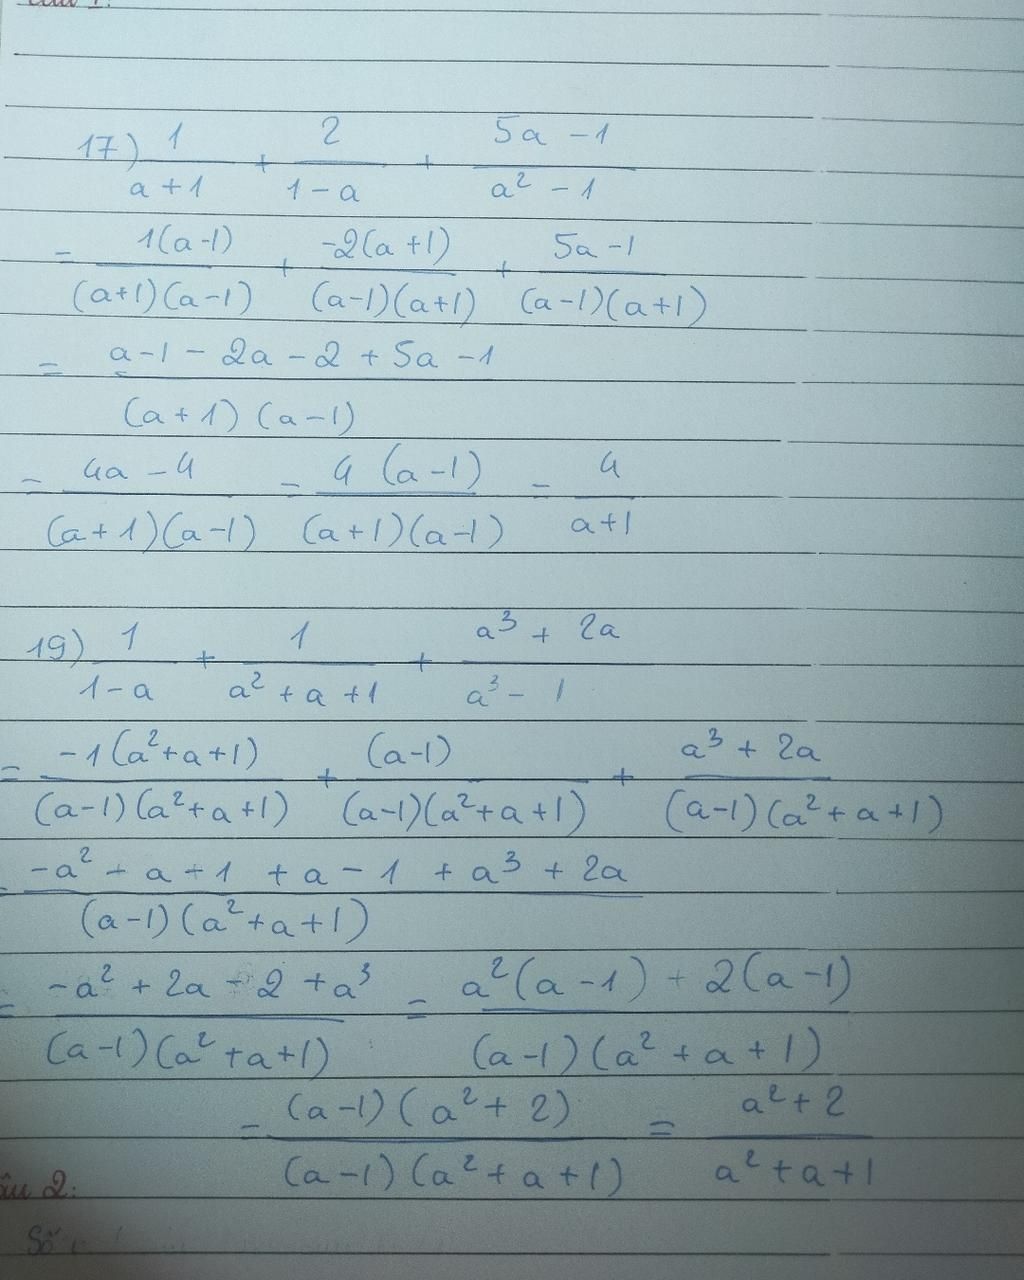 17) 1/(a+1) + 2/(1-a) + (5a-1)/(a² - 1)
= 1(a-1)/((a+1)(a-1)) + -2(a+1)/((a-1)(a+1)) + (5a-1)/((a-1)(a+1))
= (a-1 - 2a - 2 + 5a - 1)/((a+1)(a-1))
= (4a - 4)/((a+1)(a-1)) = 4(a-1)/((a+1)(a-1)) = 4/(a+1)
19) 1/(1-a) + 1/(a² + a + 1) + (a³ + 2a)/(a³ - 1)
= -1(a²+a+1)/((a-1)(a²+a+1)) + (a-1)/((a-1)(a²+a+1)) + (a³ + 2a)/((a-1)(a²+a+1))
= (-a² - a + 1 + a - 1 + a³ + 2a)/((a-1)(a²+a+1))
= (-a² + 2a - 2 + a³)/((a-1)(a²+a+1)) = (a²(a-1) + 2(a-1))/((a-1)(a²+a+1))
= (a-1)(a²+2)/((a-1)(a²+a+1)) = (a²+2)/(a²+a+1)
âu 2:
Số